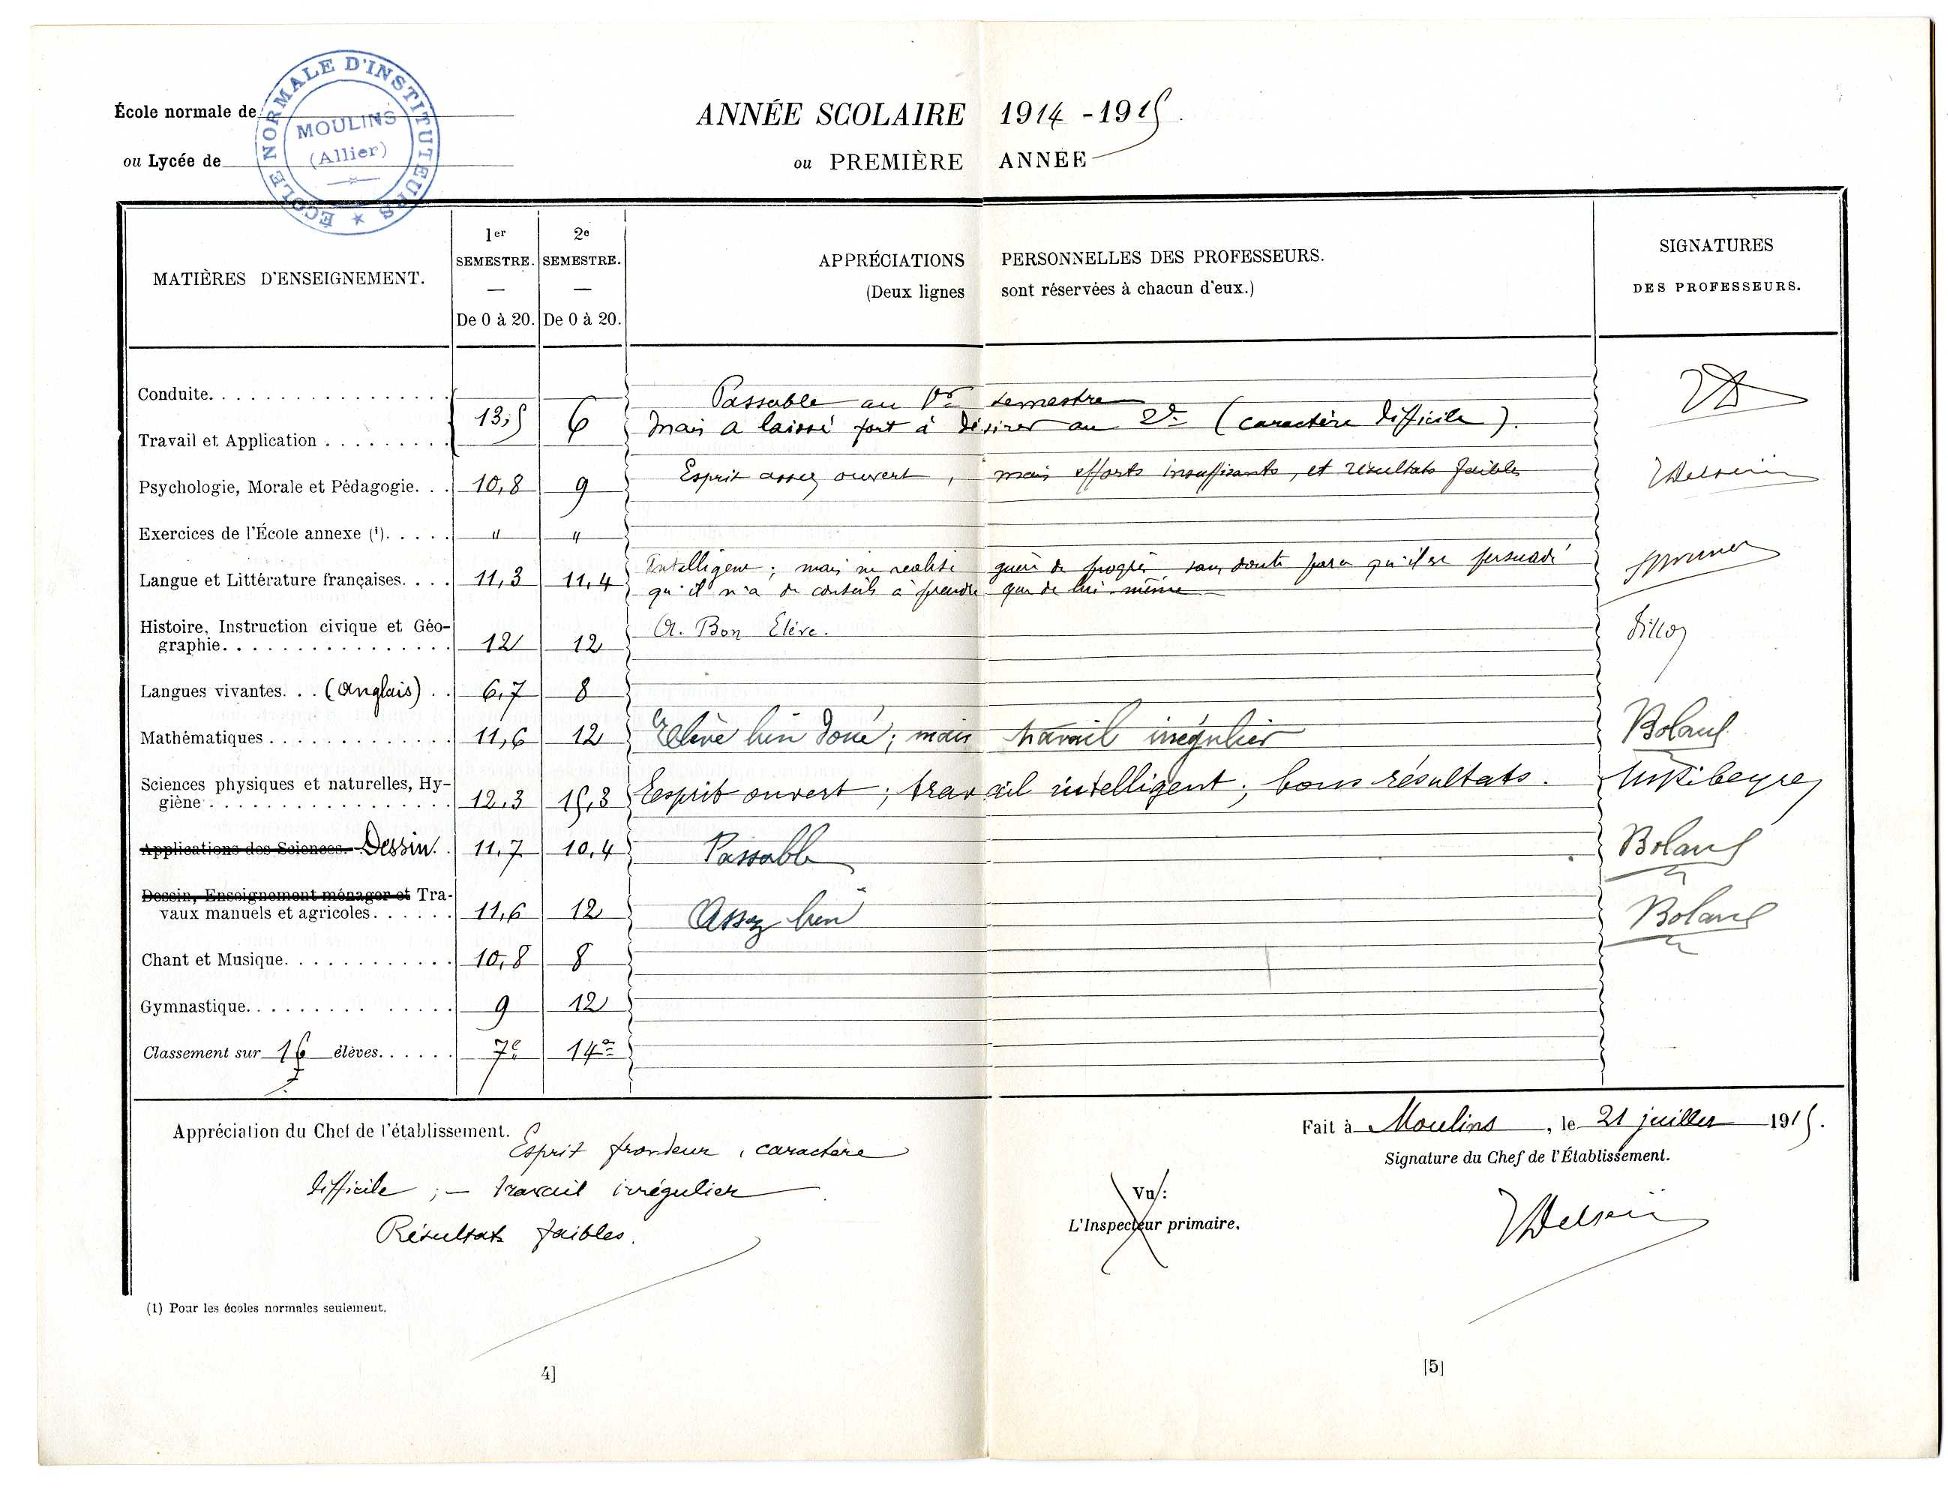 École normale de
ÉCOLE NORMALE D'INSTITUTEURS ★
MOULINS
(Allier)
ou Lycée de
ANNÉE SCOLAIRE 1914 - 1915.
ou PREMIÈRE ANNÉE
MATIÈRES D'ENSEIGNEMENT.
1er SEMESTRE. — De 0 à 20.
2e SEMESTRE. — De 0 à 20.
APPRÉCIATIONS PERSONNELLES DES PROFESSEURS.
(Deux lignes sont réservées à chacun d'eux.)
SIGNATURES
DES PROFESSEURS.
Conduite. Passable au 1er semestre
Travail et Application 13,5 6 mais a laissé fort à désirer au 2e (caractère difficile).
Psychologie, Morale et Pédagogie. 10,8 9 Esprit assez ouvert, mais efforts insuffisants, et résultats faibles
Exercices de l'École annexe (1). " "
Langue et Littérature françaises. 11,3 11,4 Intelligent; mais ne réalise guère de progrès sans doute parce qu'il est persuadé
qu'il n'a de conseils à prendre que de lui-même
Histoire, Instruction civique et Géo-
graphie. 12 12 A. Bon Élève.
Langues vivantes. (Anglais) 6,7 8
Mathématiques 11,6 12 Elève bien doué; mais travail irrégulier Boland
Sciences physiques et naturelles, Hy-
giène 12,3 15,8 Esprit ouvert; travail intelligent; bons résultats.
Applications des Sciences. Dessin. 11,7 10,4 Passable Boland
Dessin, Enseignement ménager et Tra-
vaux manuels et agricoles. 11,6 12 Assez bien Boland
Chant et Musique. 10,8 8
Gymnastique. 9 12
Classement sur 16 élèves. 7e 14e
Appréciation du Chef de l'établissement. Esprit frondeur, caractère
difficile; — travail irrégulier
Résultats faibles.
Fait à Moulins, le 21 juillet 1915.
Signature du Chef de l'Établissement.
Vu:
L'Inspecteur primaire.
(1) Pour les écoles normales seulement.
4]
[5]